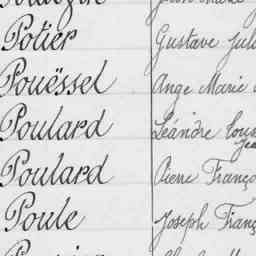 Potier Gustave Juli
Pouëssel Ange Marie
Poulard Léandre Loui
Poulard Pierre Franço
Poule Joseph Franç